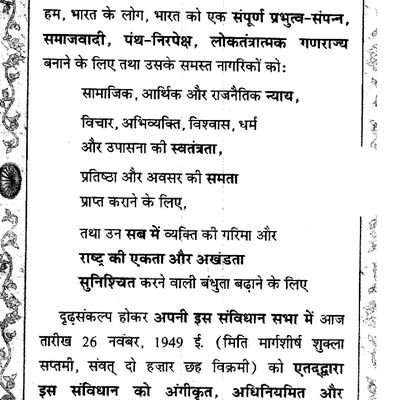 हम, भारत के लोग, भारत को एक संपूर्ण प्रभुत्व-संपन्न,
समाजवादी, पंथ-निरपेक्ष, लोकतंत्रात्मक गणराज्य
बनाने के लिए तथा उसके समस्त नागरिकों को:
सामाजिक, आर्थिक और राजनैतिक न्याय,
विचार, अभिव्यक्ति, विश्वास, धर्म
और उपासना की स्वतंत्रता,
प्रतिष्ठा और अवसर की समता
प्राप्त कराने के लिए,
तथा उन सब में व्यक्ति की गरिमा और
राष्ट्र की एकता और अखंडता
सुनिश्चित करने वाली बंधुता बढ़ाने के लिए
दृढ़संकल्प होकर अपनी इस संविधान सभा में आज
तारीख 26 नवंबर, 1949 ई. (मिति मार्गशीर्ष शुक्ला
सप्तमी, संवत् दो हजार छह विक्रमी) को एतद्द्वारा
इस संविधान को अंगीकृत, अधिनियमित और